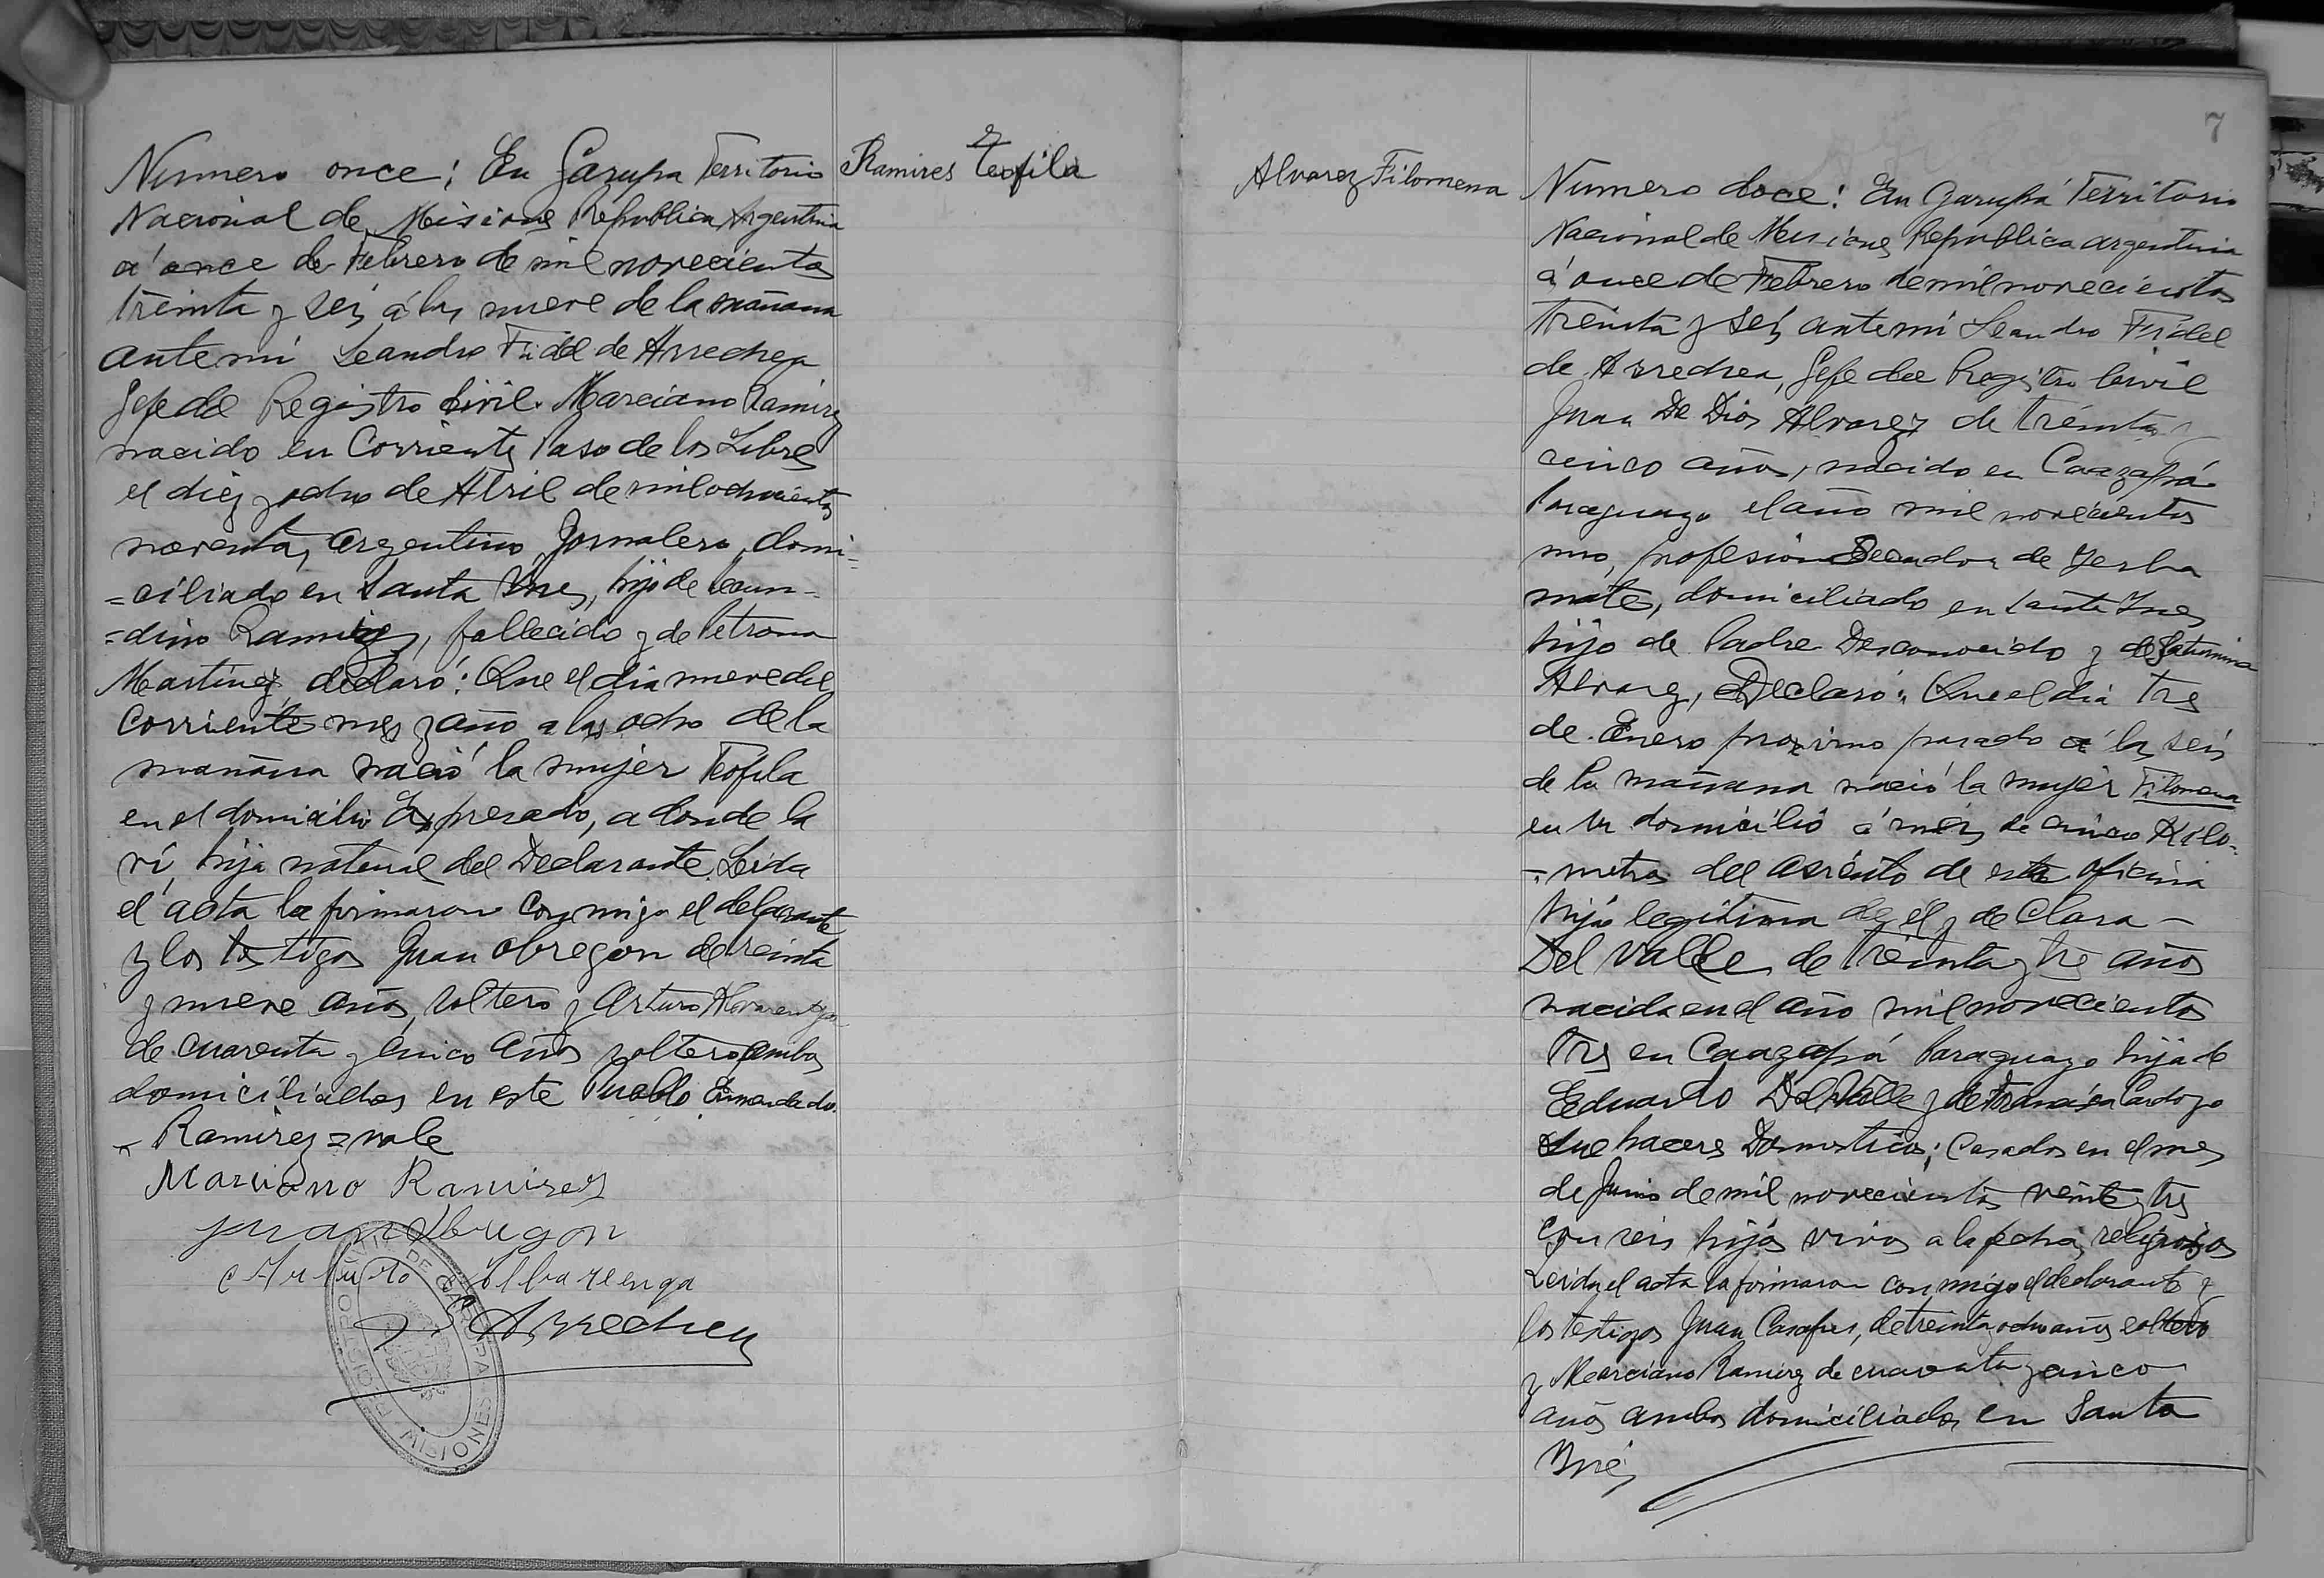 Numero once: En Garupa Territorio
Nacional de Misiones Republica Argentina
a' once de Febrero de mil novecientos
treinta y seis á las nueve de la mañana
ante mi Leandro Fidel de Arrechea
Gefe del Registro Civil. Marciano Ramirez
nacido en Corrientes Paso de los Libres
el diez y ocho de Abril de mil ochocientos
noventa, argentino Jornalero, domi=
=ciliado en Santa Ines, hijo de
=dino Ramirez, fallecido y de Petrona
Martinez declaró: Que el dia nueve del
corriente mes y año a las ocho de la
mañana nació la mujer Teofila
en el domicilio Expresado, a donde la
ví, hija natural del Declarante. Leida
el acta la firmaron con migo el declarante
y los testigos Juan Obregon de treinta
y nueve años, soltero y Arturo Alvarenga
de cuarenta y cinco años soltero ambos
domiciliados en este Pueblo Enmendado.
- Ramirez = vale
Marciano Ramirez
Juan Obregon
Arturo Albarenga
Arrechea
REGISTRO CIVIL DE GARUPA MISIONES
Ramires Teofila
Alvarez Filomena
7
Numero doce: En Garupá Territorio
Nacional de Misiones, Republica argentina
á once de Febrero de mil novecientos
treinta y seis ante mi Leandro Fidel
de Arrechea, Gefe del Registro Civil
Juan De Dios Alvarez de treinta y
cinco años, nacido en Caazapá
Paraguayo el año mil novecientos
uno, profesion Secador de Yerba
mate, domiciliado en Santa Ines
hijo de Padre Desconocido y de Saturnina
Alvarez, Declaró: Que el dia tres
de Enero proximo pasado a' las seis
de la mañana nació la mujer Filomena
en su domicilio á más de cinco Kilo-
-metros del asiento de esta oficina
hija legitima de él y de Clara -
Del Valle de treinta y tres años
nacida en el año mil novecientos
tres en Caazapá Paraguayo hija de
Eduardo Del Valle y de Cardozo
Que haceres Domesticos; Casados en el mes
de Junio de mil novecientos veinte y tres
con seis hijos vivos a la fecha, religiosos
Leida el acta la firmaron con migo el declarante y
los testigos Juan de treinta y ocho años soltero
y Marciano Ramirez de cuarenta y cinco
años ambos domiciliados en Santa
Inés